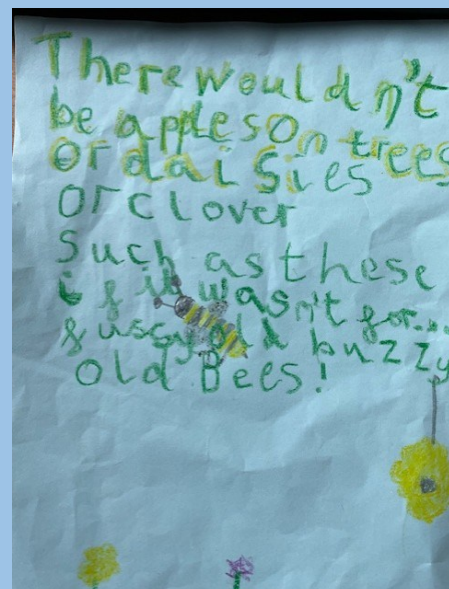 There wouldn't
be apples on trees
or daisies
or clover
Such as these
if it wasn't for...
fussy old buzzy
old Bees!